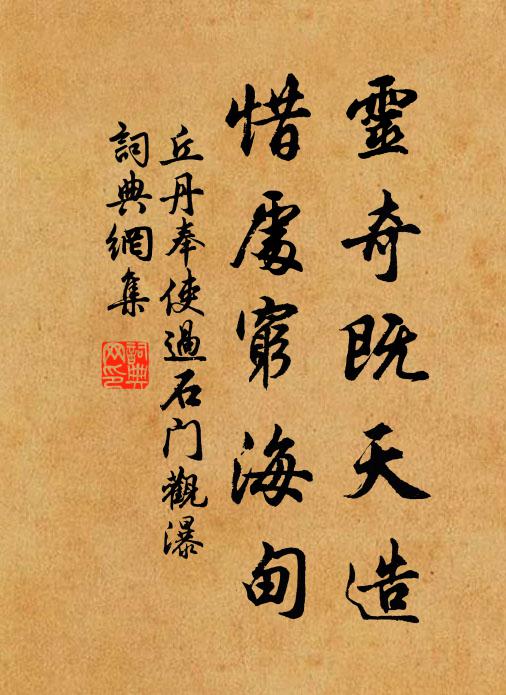 靈奇既天造
惜處窮海甸
丘丹奉使過石门觀瀑
詞典網集
詞典網印